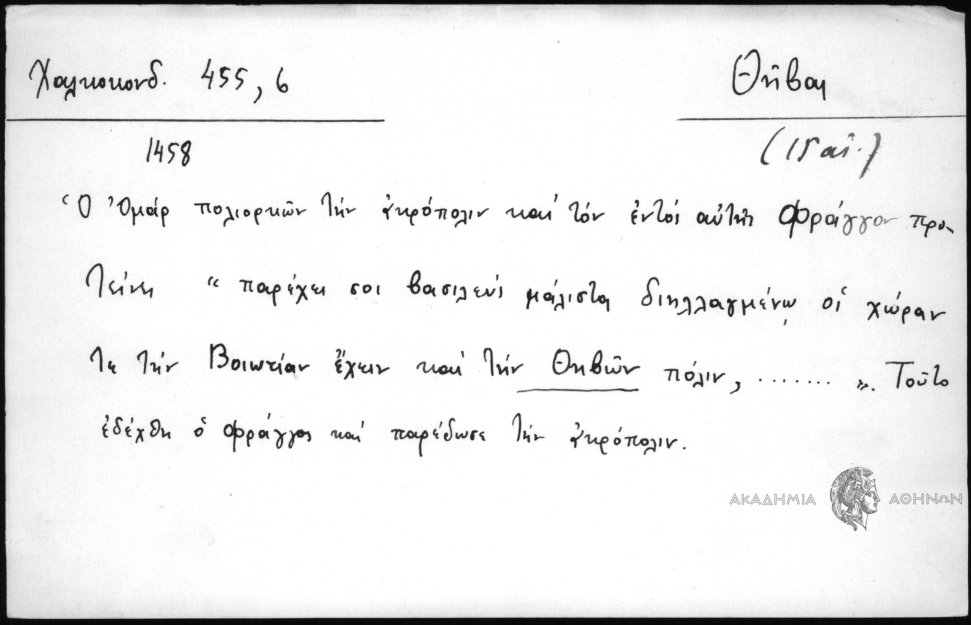 Χαλκοκονδ. 455, 6 Θῆβαι
1458 (15 αἰ.)
Ὁ Ὀμάρ πολιορκῶν τήν ἀκρόπολιν καί τόν ἐντός αὐτῆς Φράγγον προ-
τείνει "παρέχει σοι βασιλεύς μάλιστα διηλλαγμένῳ οἱ χώραν
τε τήν Βοιωτίαν ἔχειν καί τήν Θηβῶν πόλιν, ....... ". Τοῦτο
ἐδέχθη ὁ Φράγγος καί παρέδωσε τήν ἀκρόπολιν.
ΑΚΑΔΗΜΙΑ ΑΘΗΝΩΝ